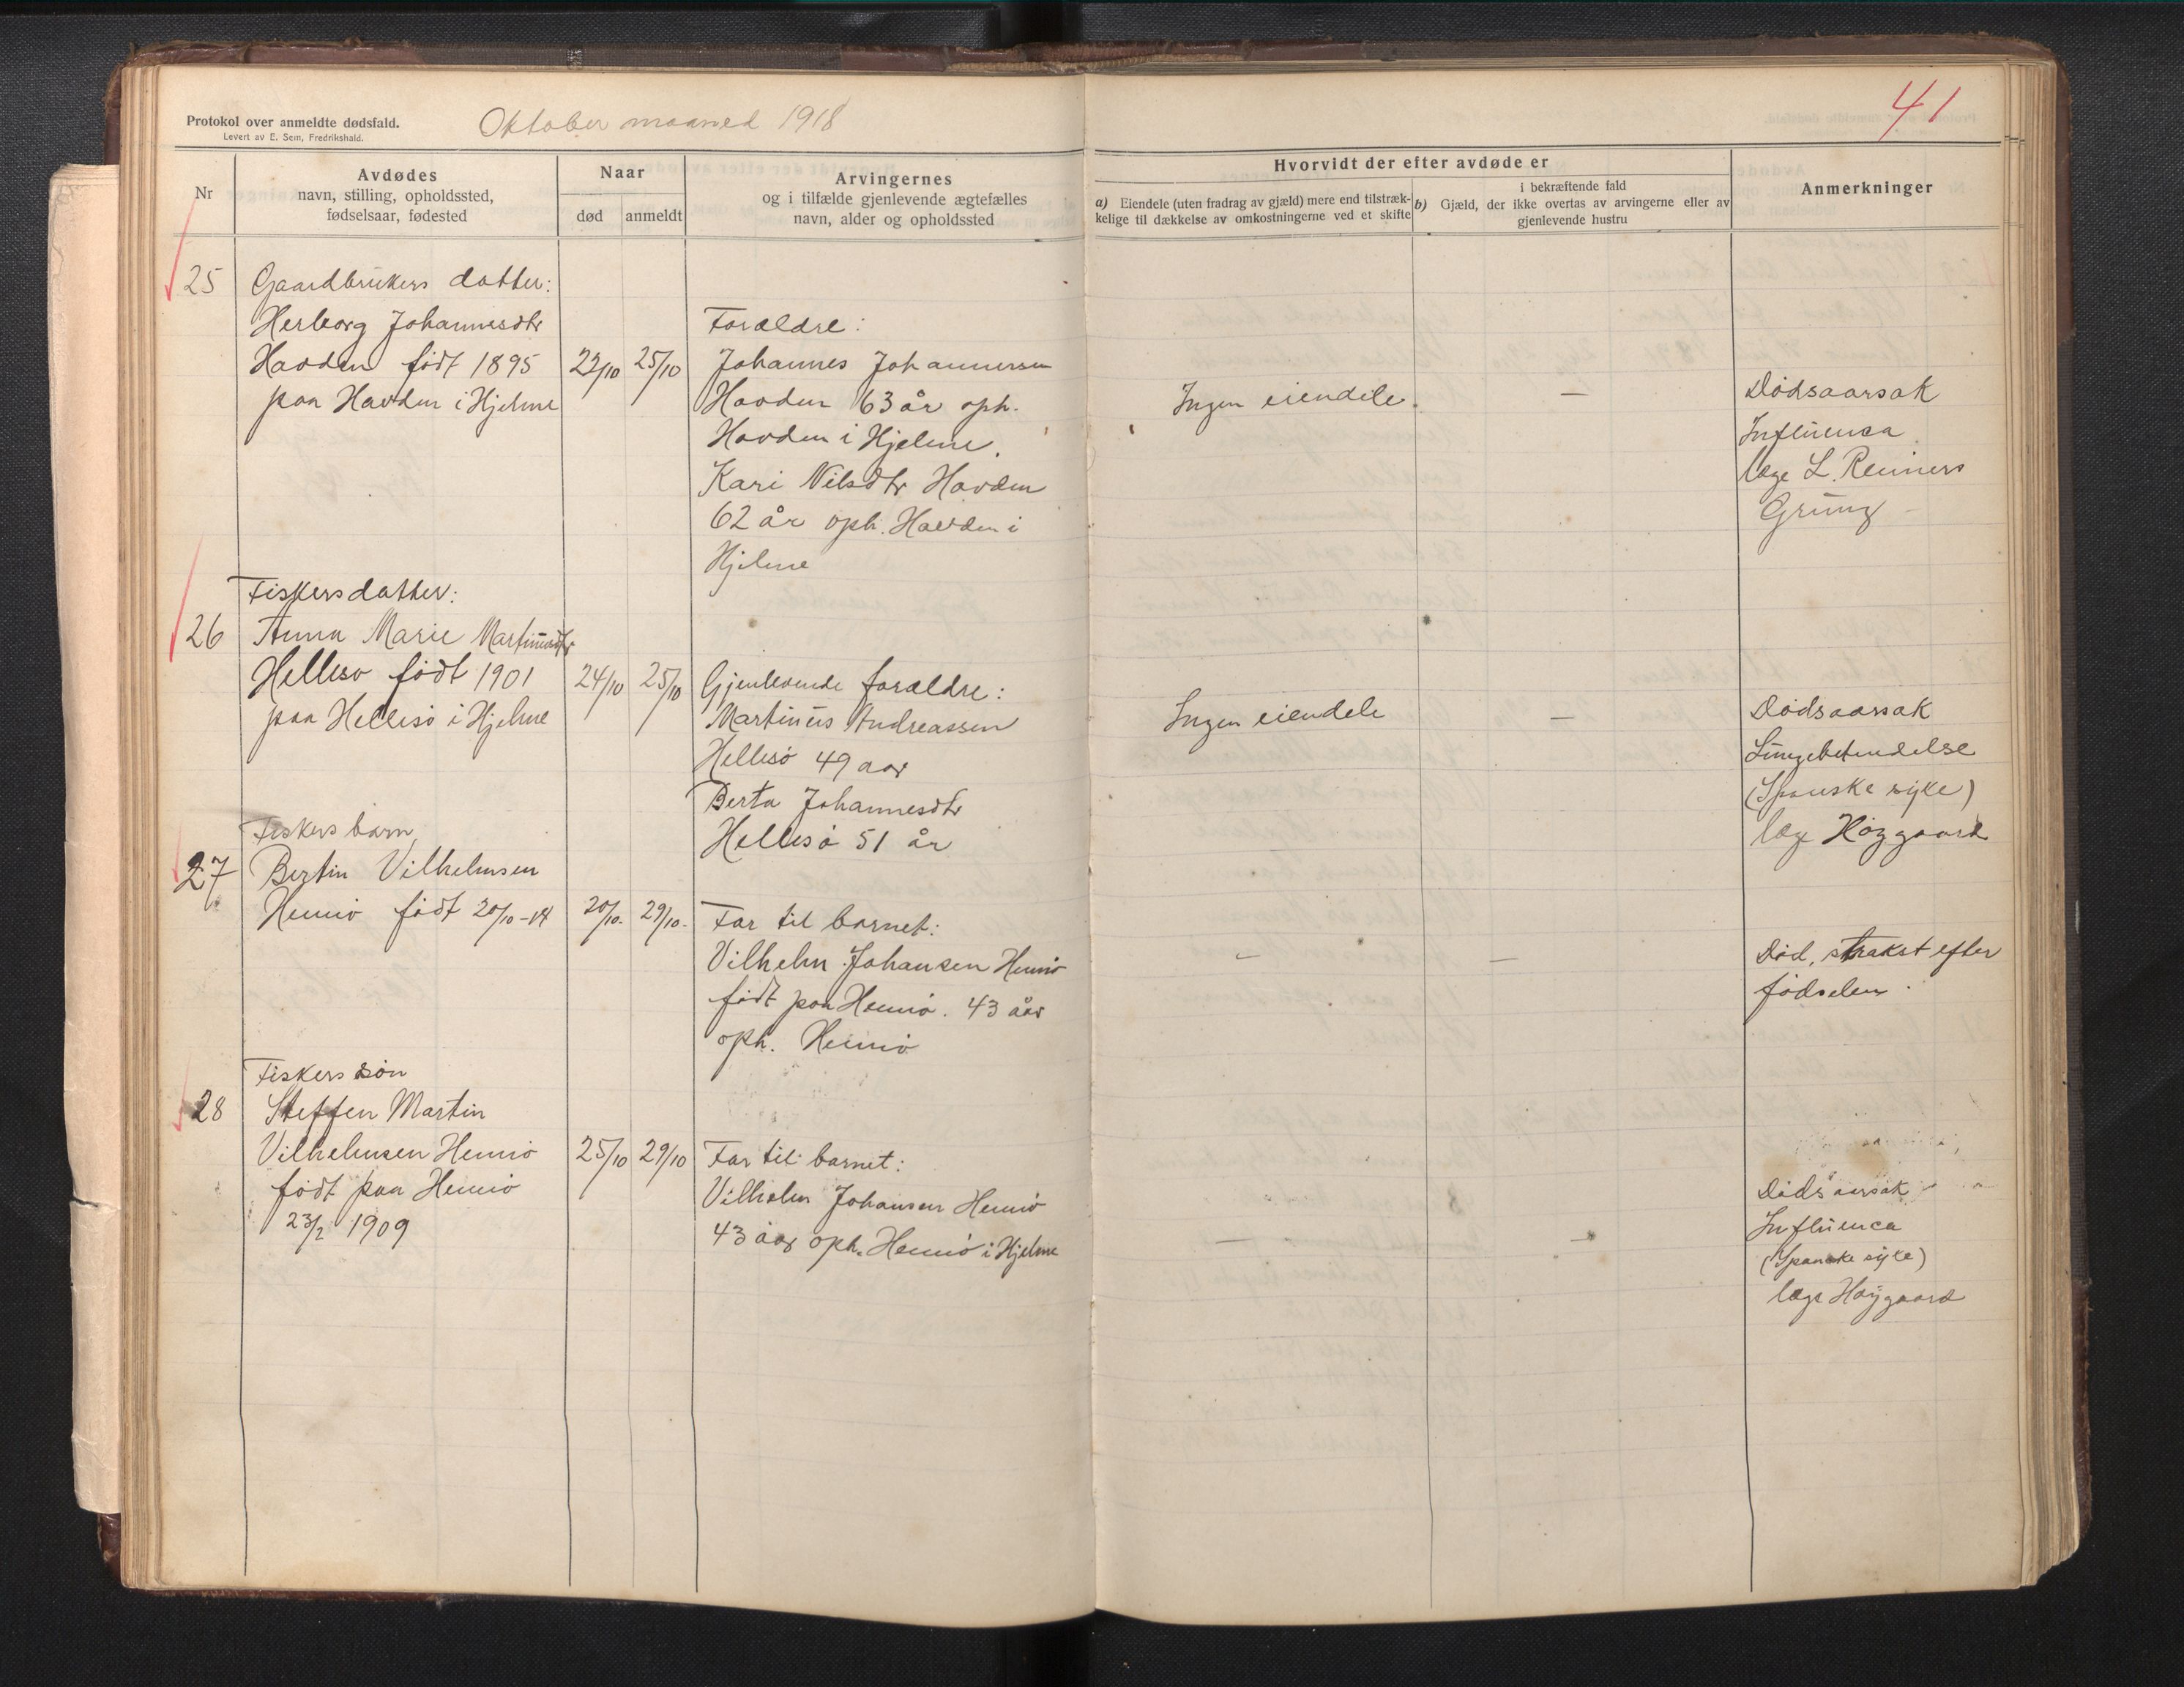 Protokol over anmeldte dødsfald.
Levert av E. Sem, Fredrikshald.
Oktober maaned 1918
41
Nr
Avdødes
navn, stilling, opholdssted,
fødselsaar, fødested
Naar
død
anmeldt
Arvingernes
og i tilfælde gjenlevende ægtefælles
navn, alder og opholdssted
Hvorvidt der efter avdøde er
a) Eiendele (uten fradrag av gjæld) mere end tilstræk-
kelige til dækkelse av omkostningerne ved et skifte
i bekræftende fald
b) Gjæld, der ikke overtas av arvingerne eller av
gjenlevende hustru
Anmerkninger
25
Gaardbrukers datter:
Herborg Johannesdtr
Havden født 1895
paa Havden i Hjelme
22/10
25/10
Forældre:
Johannes Johannessen
Hovden 63 år oph.
Hovden i Hjelme.
Kari Nilsdtr Hovden
62 år oph. Hovden i
Hjelme
Ingen eiendele.
—
Dødsaarsak
Influensa
læge L. Reimers
Grung
26
Fiskersdatter:
Anna Marie Martinusdtr
Hellesø født 1901
paa Hellesø i Hjelme
24/10
25/10
Gjenlevende forældre:
Martinus Andreassen
Hellesø 49 aar
Berta Johannesdtr
Hellesø 51 år
Ingen eiendele
—
Dødsaarsak
Lungebetendelse
(Spanske syke)
læge Høygaard
27
Fiskers barn
Bertin Vilhelmsen
Hernø født 20/10-18
20/10.
29/10.
Far til barnet:
Vilhelm Johansen Hernø
født paa Hernø. 43 åar
oph. Hernø
—
—
Død, strakst efter
fødselen.
28
Fiskers søn
Steffen Martin
Vilhelmsen Hernø
født paa Hernø
23/2 1909
25/10
29/10
Far til barnet:
Vilhelm Johansen Hernø
43 åar oph. Hernø i Hjelme
—
—
Dødsaarsak
Influenca
(Spanske syke)
læge Høygaard